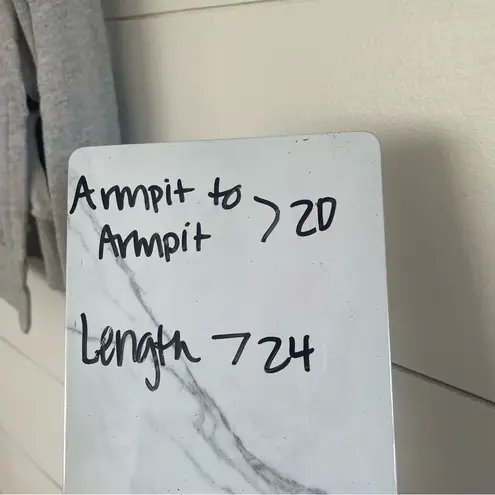 Armpit to
Armpit > 20
Length > 24